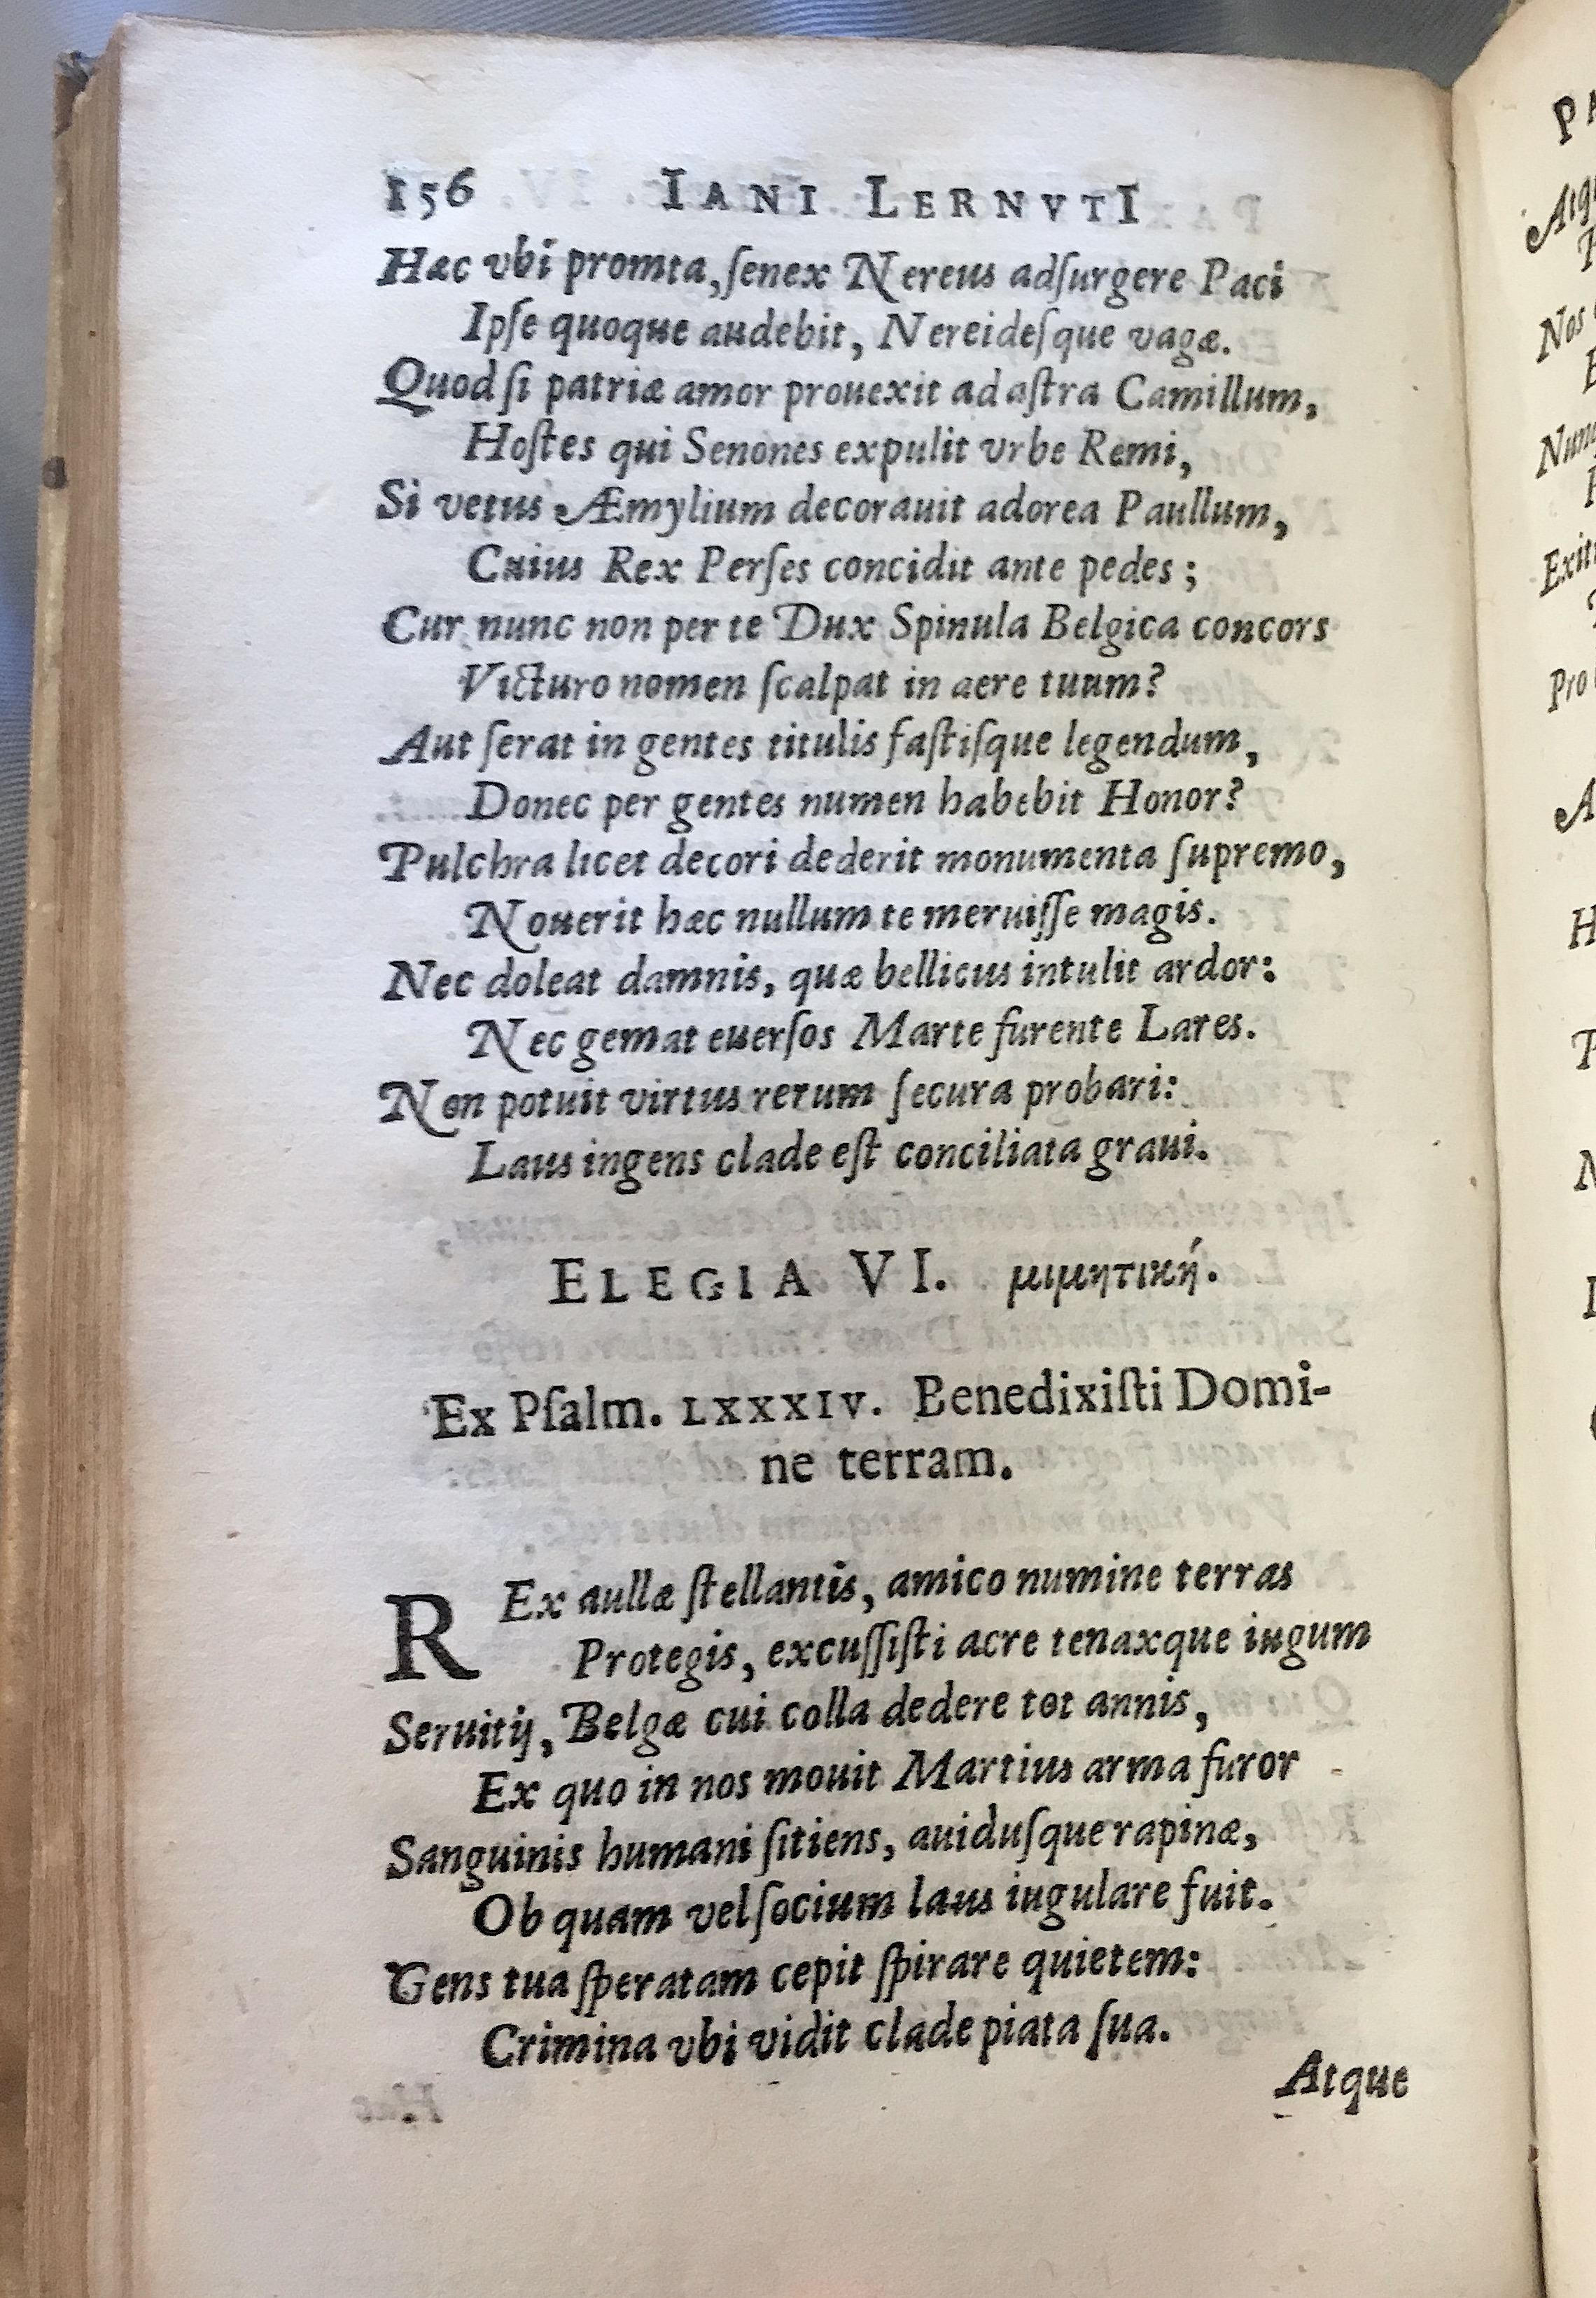 156 IANI LERNVTI
Hæc vbi promta, ſenex Nereus adſurgere Paci
Ipſe quoque audebit, Nereideſque vagæ.
Quod ſi patriæ amor prouexit ad aſtra Camillum,
Hoſtes qui Senones expulit vrbe Remi,
Si vetus Æmylium decorauit adorea Paullum,
Cuius Rex Perſes concidit ante pedes;
Cur nunc non per te Dux Spinula Belgica concors
Victuro nomen ſcalpat in aere tuum?
Aut ſerat in gentes titulis faſtiſque legendum,
Donec per gentes numen habebit Honor?
Pulchra licet decori dederit monumenta ſupremo,
Nouerit hæc nullum te meruiſſe magis.
Nec doleat damnis, quæ bellicus intulit ardor:
Nec gemat euerſos Marte furente Lares.
Non potuit virtus rerum ſecura probari:
Laus ingens clade eſt conciliata graui.
ELEGIA VI. μιμητική.
Ex Pſalm. LXXXIV. Benedixiſti Domi-
ne terram.
REx aullæ ſtellantis, amico numine terras
Protegis, excuſſiſti acre tenaxque iugum
Seruitij, Belgæ cui colla dedere tot annis,
Ex quo in nos mouit Martius arma furor
Sanguinis humani ſitiens, auiduſque rapinæ,
Ob quam vel ſocium laus iugulare fuit.
Gens tua ſperatam cepit ſpirare quietem:
Crimina vbi vidit clade piata ſua.
Atque